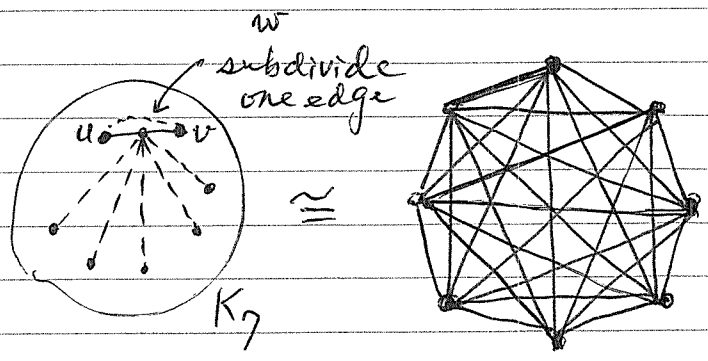 w
subdivide
one edge
u v
≅
K₇